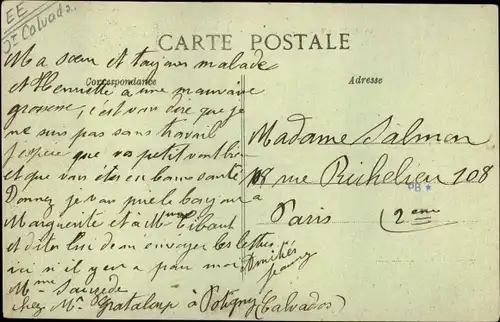 EE
Dt Calvados
CARTE POSTALE
Correspondance
Adresse
Ma sœur et toujours malade
et Henriette a une mauvaise
grossesse, c'est vous dire que je
ne suis pas sans travail
J'espère que vos petit vont bien
et que vous êtes en bonne santé
Donnez je vous prie le bonjour a
Marguerite et à Mme
et dites lui de m envoyer les lettres
ici si il y en a pour moi
Amitiés
Mme
chez Mr à Potigny (Calvados)
Madame Salmon
108 rue Richelieu 108
Paris 2eme